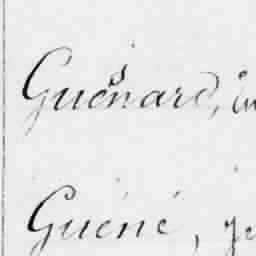 Guénard,
Guéné,